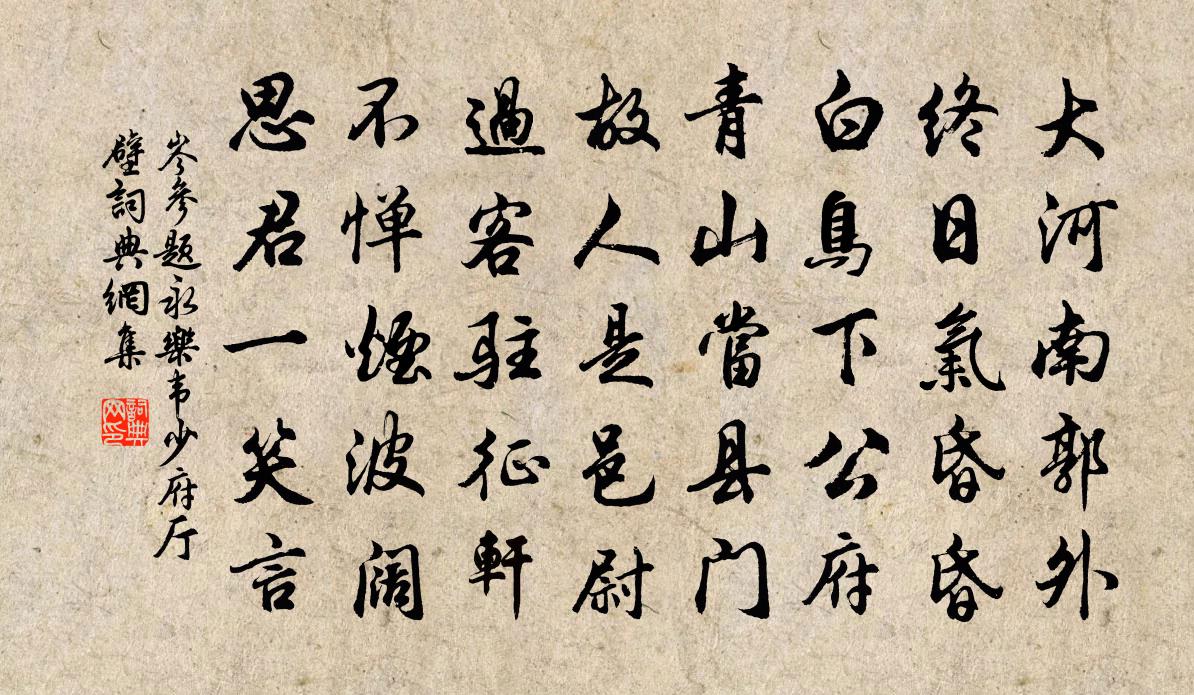 大河南郭外
終日氣昏昏
白鳥下公府
青山當县门
故人是邑尉
過客駐征軒
不惮煙波阔
思君一笑言
岑參题永樂韦少府厅
壁詞典網集
詞典
网印